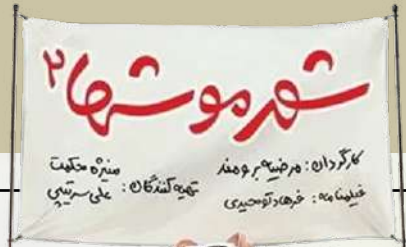 شهر موشها ۲
کارگردان: مرضیه برومند
فیلمنامه: فرهاد توحیدی
تهیه کنندگان: منیژه حکمت
علی سرتیپی